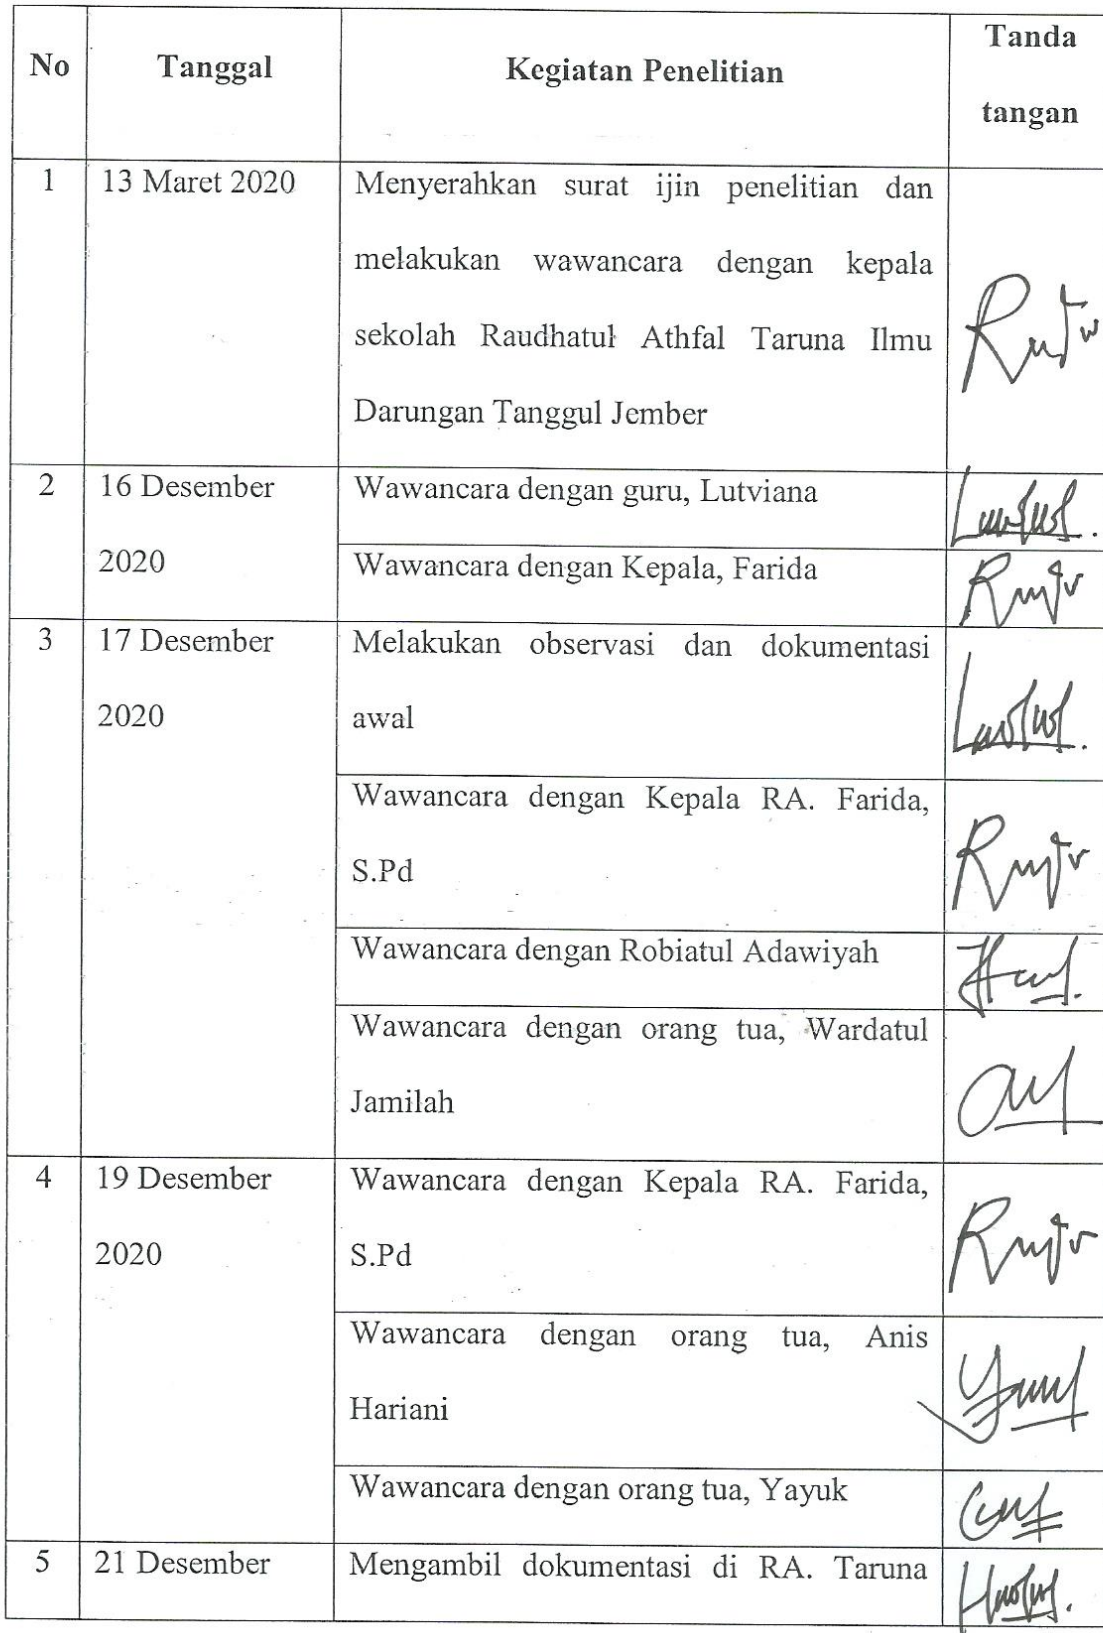 No Tanggal Kegiatan Penelitian Tanda
tangan
1 13 Maret 2020 Menyerahkan surat ijin penelitian dan
melakukan wawancara dengan kepala
sekolah Raudhatul Athfal Taruna Ilmu
Darungan Tanggul Jember
2 16 Desember Wawancara dengan guru, Lutviana
2020 Wawancara dengan Kepala, Farida
3 17 Desember Melakukan observasi dan dokumentasi
2020 awal
Wawancara dengan Kepala RA. Farida,
S.Pd
Wawancara dengan Robiatul Adawiyah
Wawancara dengan orang tua, Wardatul
Jamilah
4 19 Desember Wawancara dengan Kepala RA. Farida,
2020 S.Pd
Wawancara dengan orang tua, Anis
Hariani
Wawancara dengan orang tua, Yayuk
5 21 Desember Mengambil dokumentasi di RA. Taruna